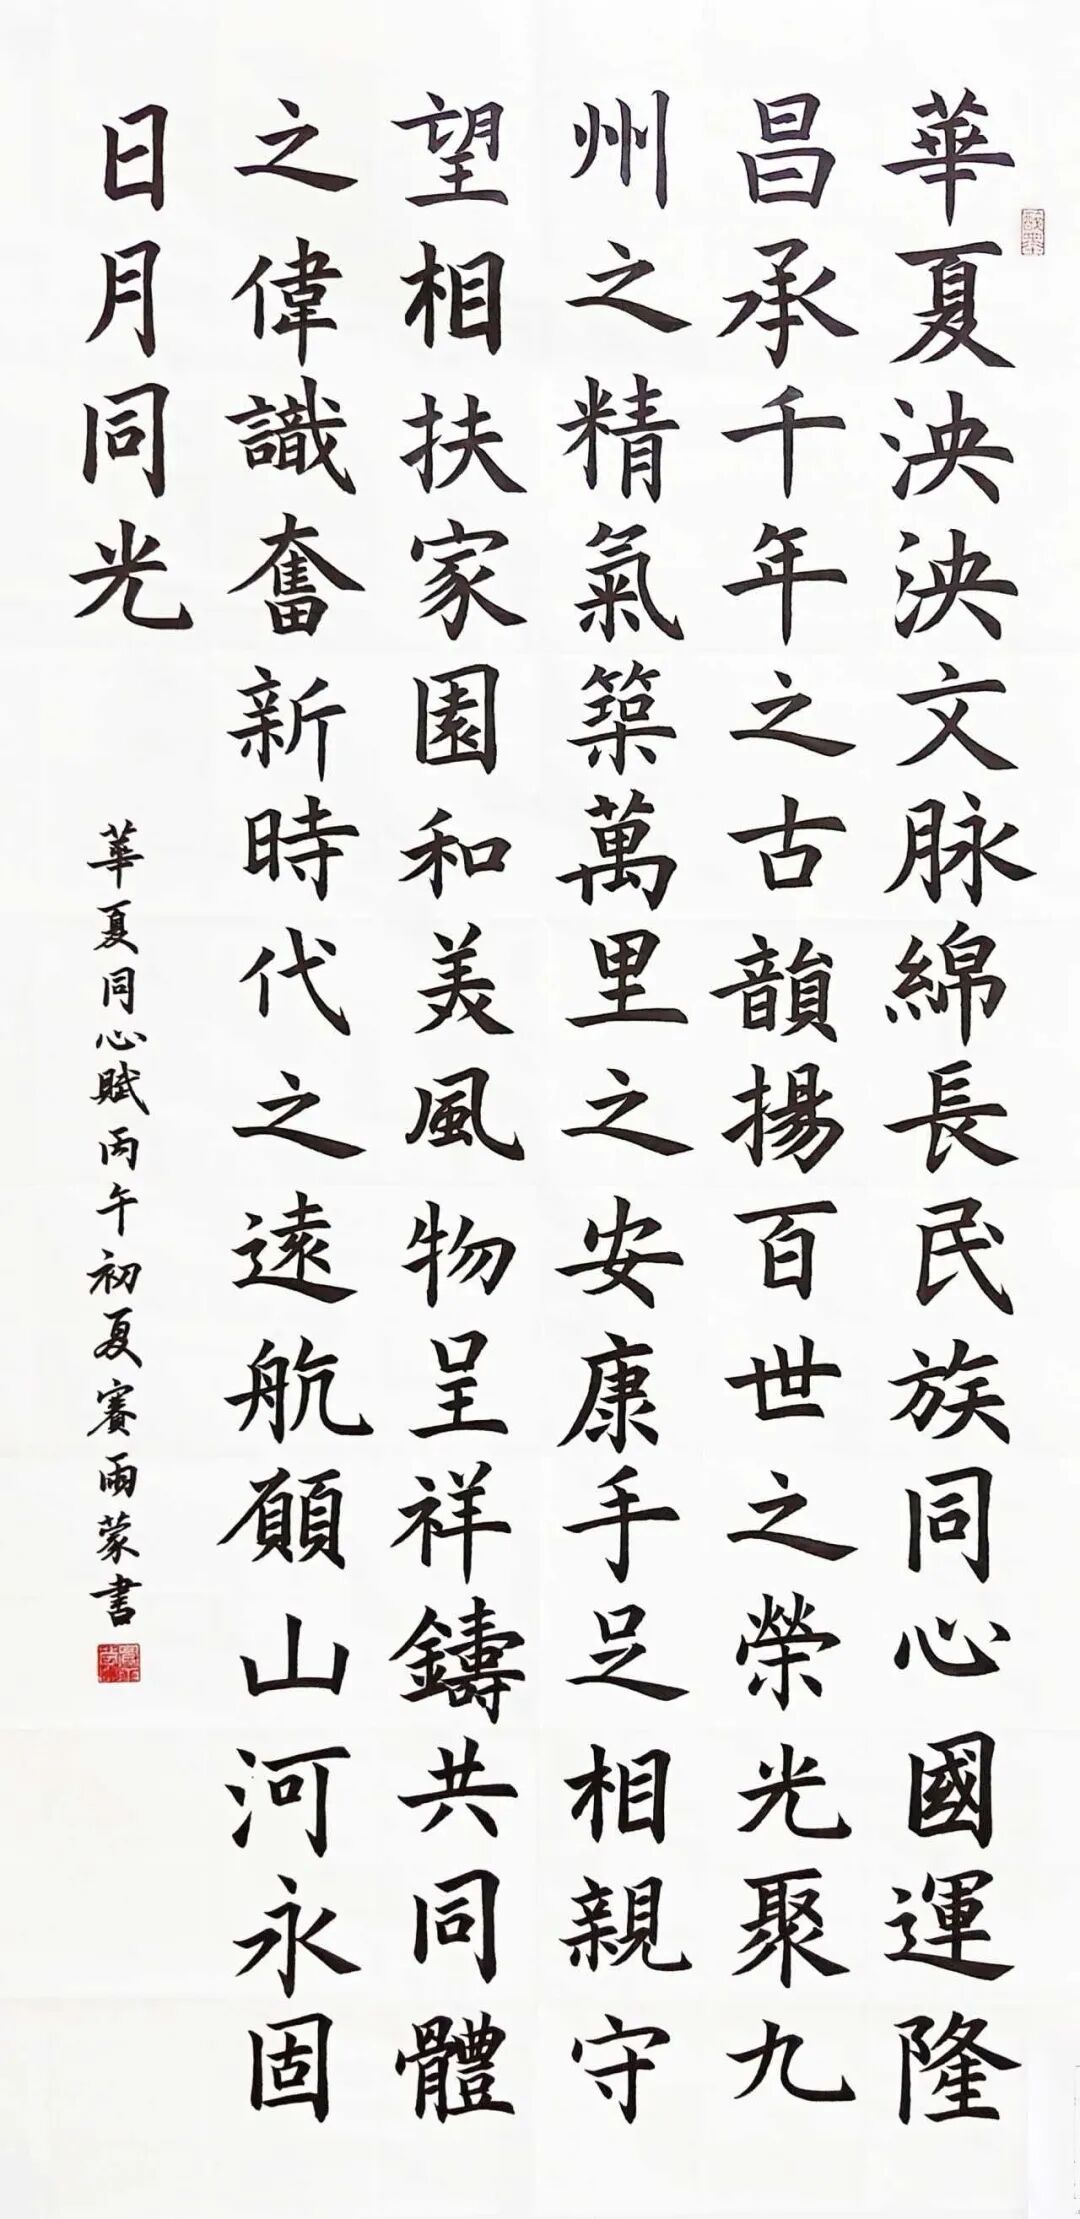 華夏泱泱文脉綿長民族同心國運隆
昌承千年之古韻揚百世之榮光聚九
州之精氣築萬里之安康手足相親守
望相扶家園和美風物呈祥鑄共同體
之偉識奮新時代之遠航願山河永固
日月同光
華夏同心賦丙午初夏賽雨蒙書